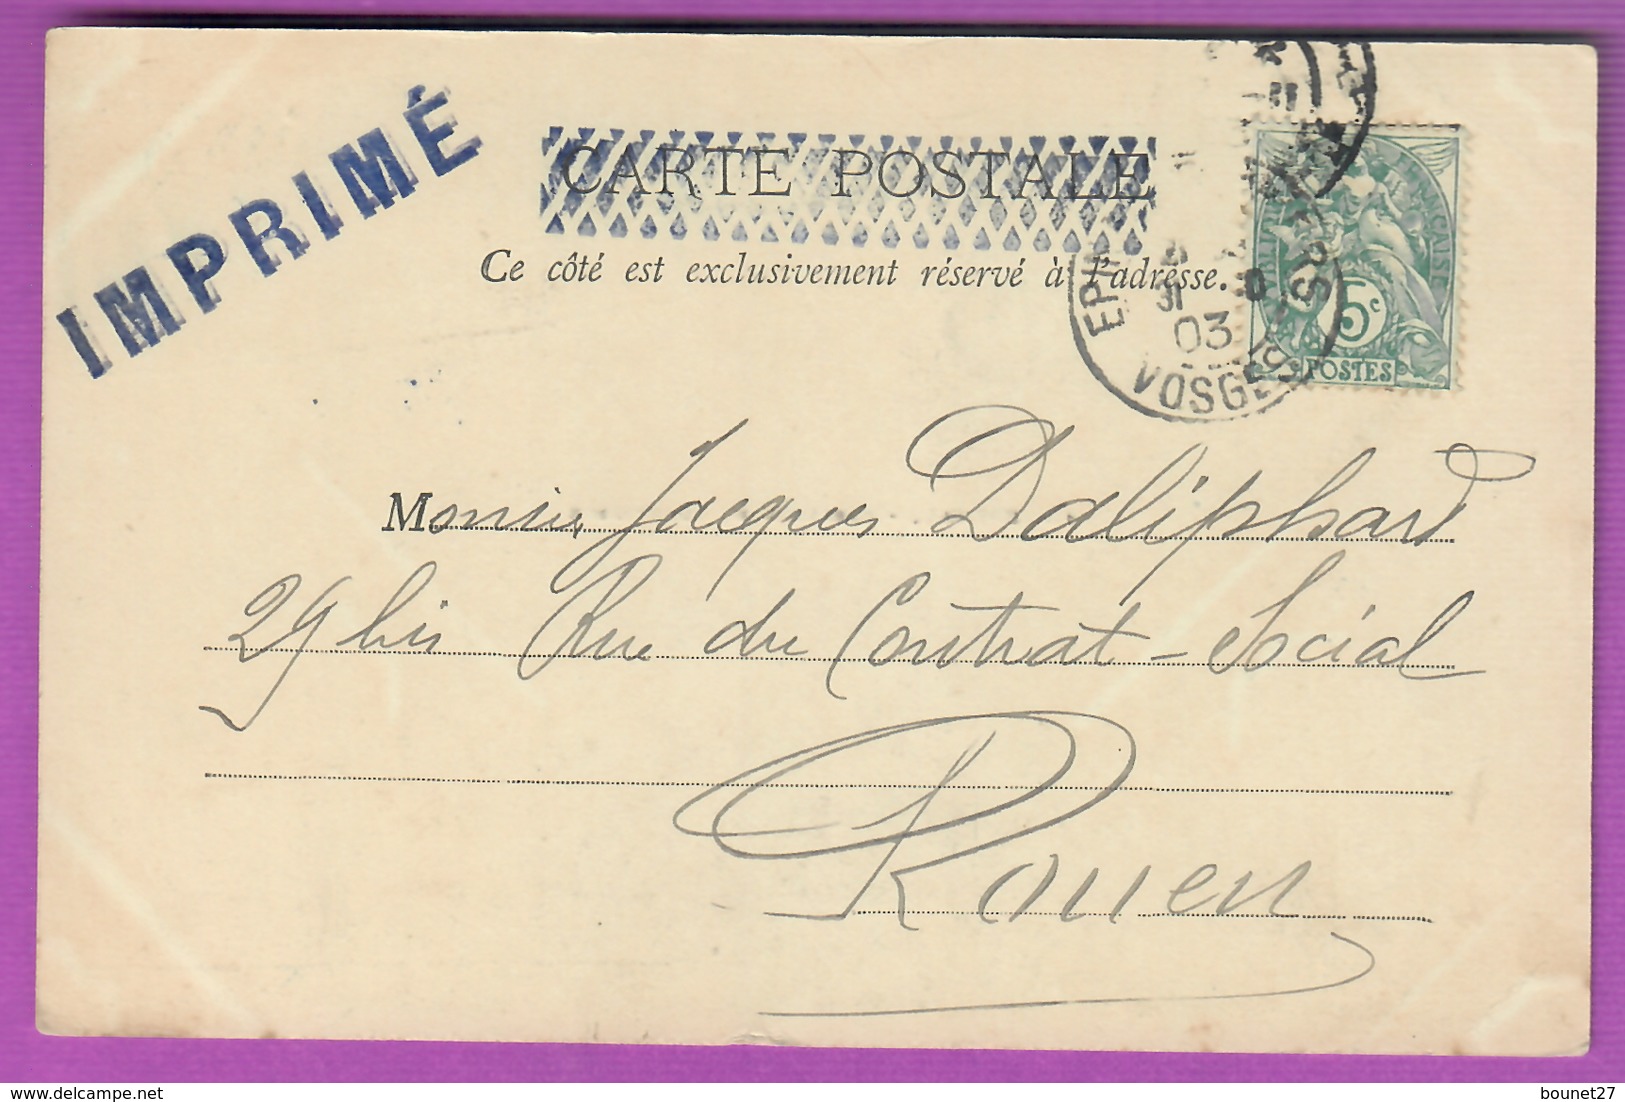 IMPRIMÉ
CARTE POSTALE
Ce côté est exclusivement réservé à l'adresse.
03
VOSGES
5c
POSTES
Monsieur Jacques Daliphard
29 bis Rue du Contrat-Social
Rouen
delcampe.net
bounet27